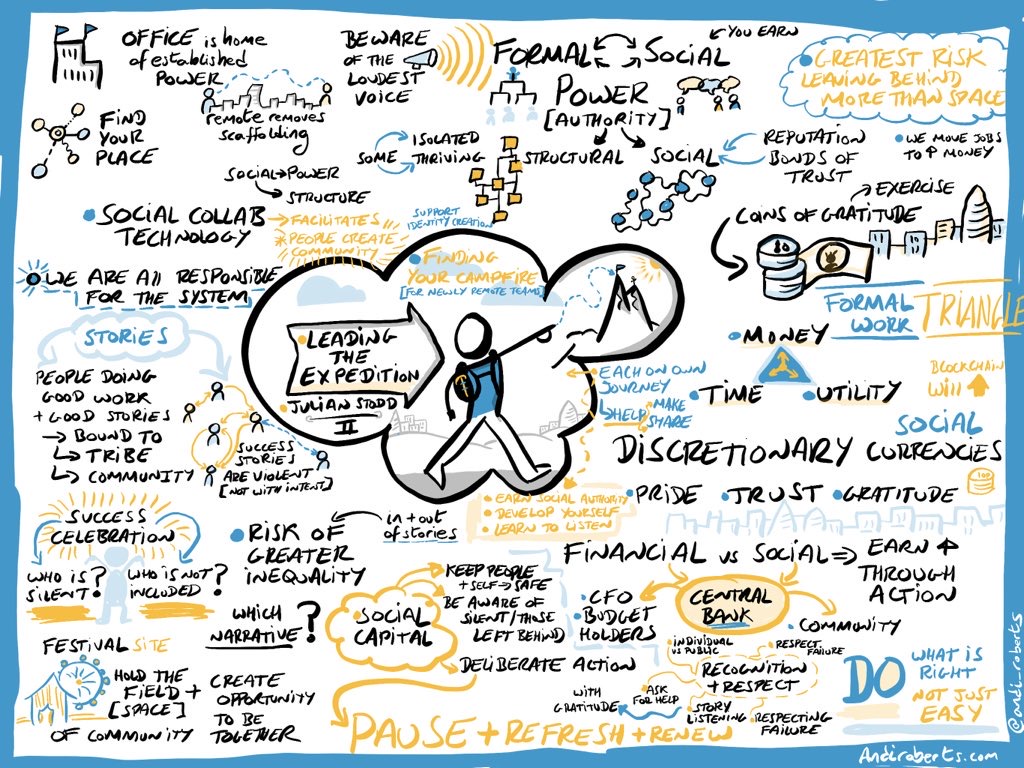 OFFICE is home
of established
POWER
remote removes
scaffolding
FIND
YOUR
PLACE
BEWARE
OF THE
LOUDEST
VOICE
FORMAL
SOCIAL
POWER
[AUTHORITY]
YOU EARN
GREATEST RISK
LEAVING BEHIND
MORE THAN SPACE
SOME
ISOLATED
THRIVING
STRUCTURAL
SOCIAL
REPUTATION
BONDS OF
TRUST
WE MOVE JOBS
TO ↑ MONEY
SOCIAL → POWER
STRUCTURE
SOCIAL COLLAB
TECHNOLOGY
FACILITATES
PEOPLE CREATE
COMMUNITY
SUPPORT
IDENTITY CREATION
EXERCISE
COINS OF GRATITUDE
10
WE ARE All RESPONSIBLE
FOR THE SYSTEM
FINDING
YOUR CAMPFIRE
[FOR NEWLY REMOTE TEAMS]
LEADING
THE
EXPEDITION
JULIAN STODD
II
FORMAL
WORK
TRIANGLE
MONEY
TIME
UTILITY
BLOCKCHAIN
Will ↑
STORIES
PEOPLE DOING
GOOD WORK
+ GOOD STORIES
→ BOUND TO
↳ TRIBE
↳ COMMUNITY
SUCCESS
STORIES
ARE VIOLENT
[NOT WITH INTENT]
EACH ON OWN
JOURNEY
↳ HELP
MAKE
SHARE
SOCIAL
DISCRETIONARY CURRENCIES
PRIDE
TRUST
GRATITUDE
100
EARN SOCIAL AUTHORITY
DEVELOP YOURSELF
LEARN TO LISTEN
SUCCESS
CELEBRATION
WHO IS
SILENT?
WHO IS NOT
INCLUDED?
RISK OF
GREATER
INEQUALITY
in + out
of stories
WHICH
NARRATIVE?
SOCIAL
CAPITAL
KEEP PEOPLE
+ SELF → SAFE
BE AWARE OF
SILENT/THOSE
LEFT BEHIND
DELIBERATE ACTION
FINANCIAL vs SOCIAL ⇒
EARN ↑
THROUGH
ACTION
CFO
BUDGET
HOLDERS
CENTRAL
BANK
COMMUNITY
INDIVIDUAL
vs PUBLIC
RESPECT
FAILURE
RECOGNITION
+ RESPECT
WITH
GRATITUDE
ASK
FOR HELP
STORY
LISTENING
RESPECTING
FAILURE
DO
WHAT IS
RIGHT
NOT JUST
EASY
FESTIVAL SITE
HOLD THE
FIELD +
[SPACE]
OF COMMUNITY
CREATE
OPPORTUNITY
TO BE
TOGETHER
PAUSE + REFRESH + RENEW
@andi_roberts
Andiroberts.com